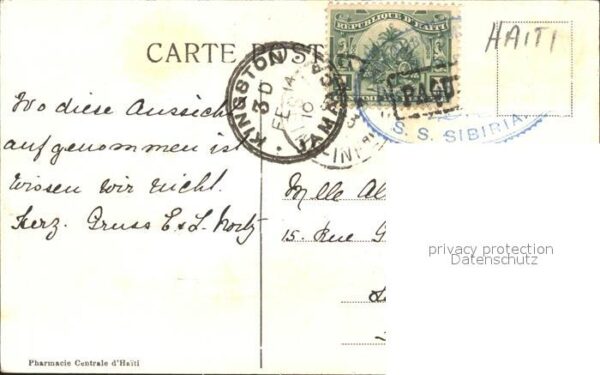 CARTE POST
HAITI
REPUBLIQUE D'HAITI
KINGSTON JAMA
3 D
FE 14
10
S. S. SIBIRIA
Wo diese Aussicht
aufgenommen ist
wissen wir nicht.
Herz. Gruss E & L
Mlle Al
15. Rue G
privacy protection
Datenschutz
Pharmacie Centrale d'Haïti